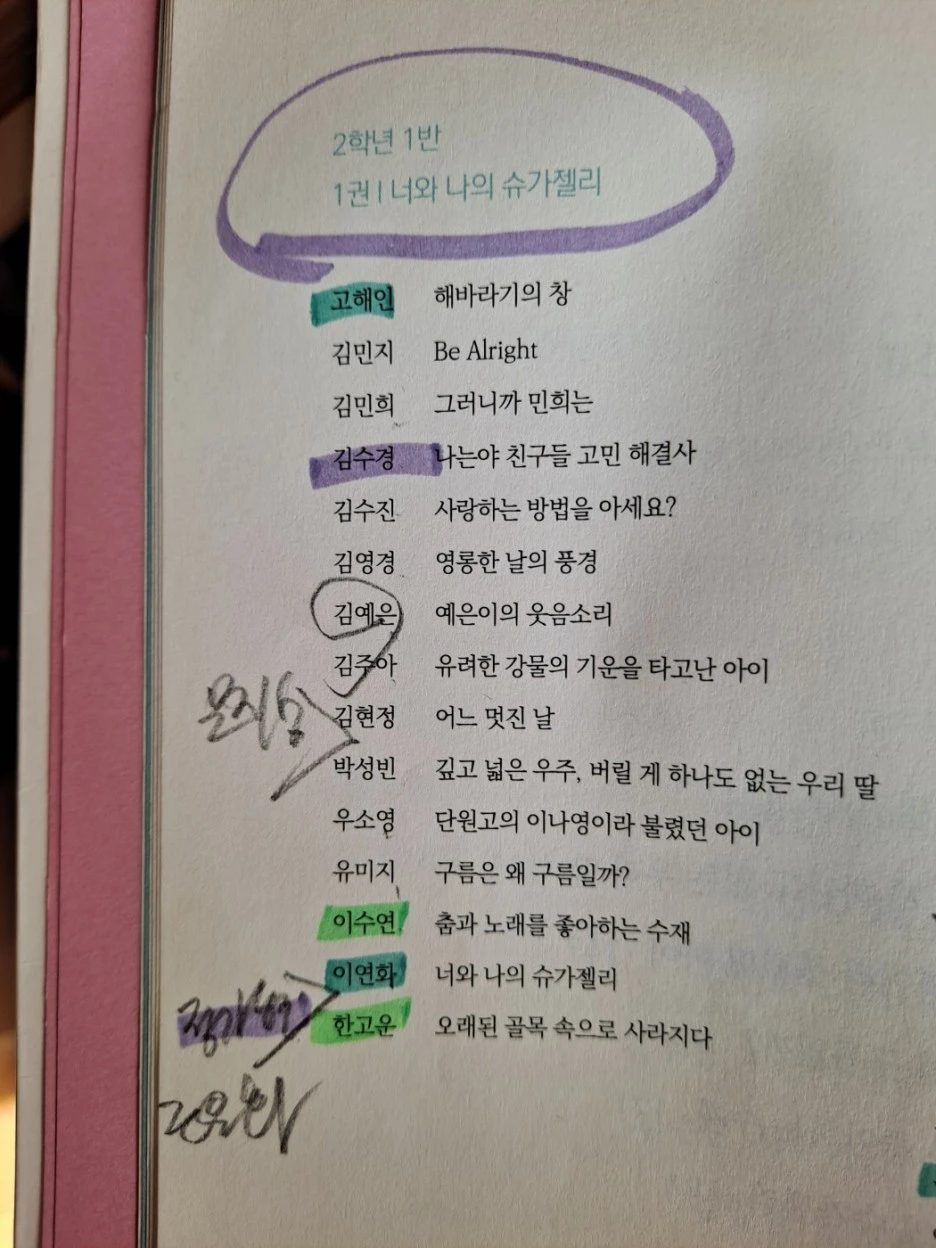 2학년 1반
1권 | 너와 나의 슈가젤리
고해인 해바라기의 창
김민지 Be Alright
김민희 그러니까 민희는
김수경 나는야 친구들 고민 해결사
김수진 사랑하는 방법을 아세요?
김영경 영롱한 날의 풍경
김예은 예은이의 웃음소리
김주아 유려한 강물의 기운을 타고난 아이
김현정 어느 멋진 날
박성빈 깊고 넓은 우주, 버릴 게 하나도 없는 우리 딸
우소영 단원고의 이나영이라 불렸던 아이
유미지 구름은 왜 구름일까?
이수연 춤과 노래를 좋아하는 수재
이연화 너와 나의 슈가젤리
한고운 오래된 골목 속으로 사라지다